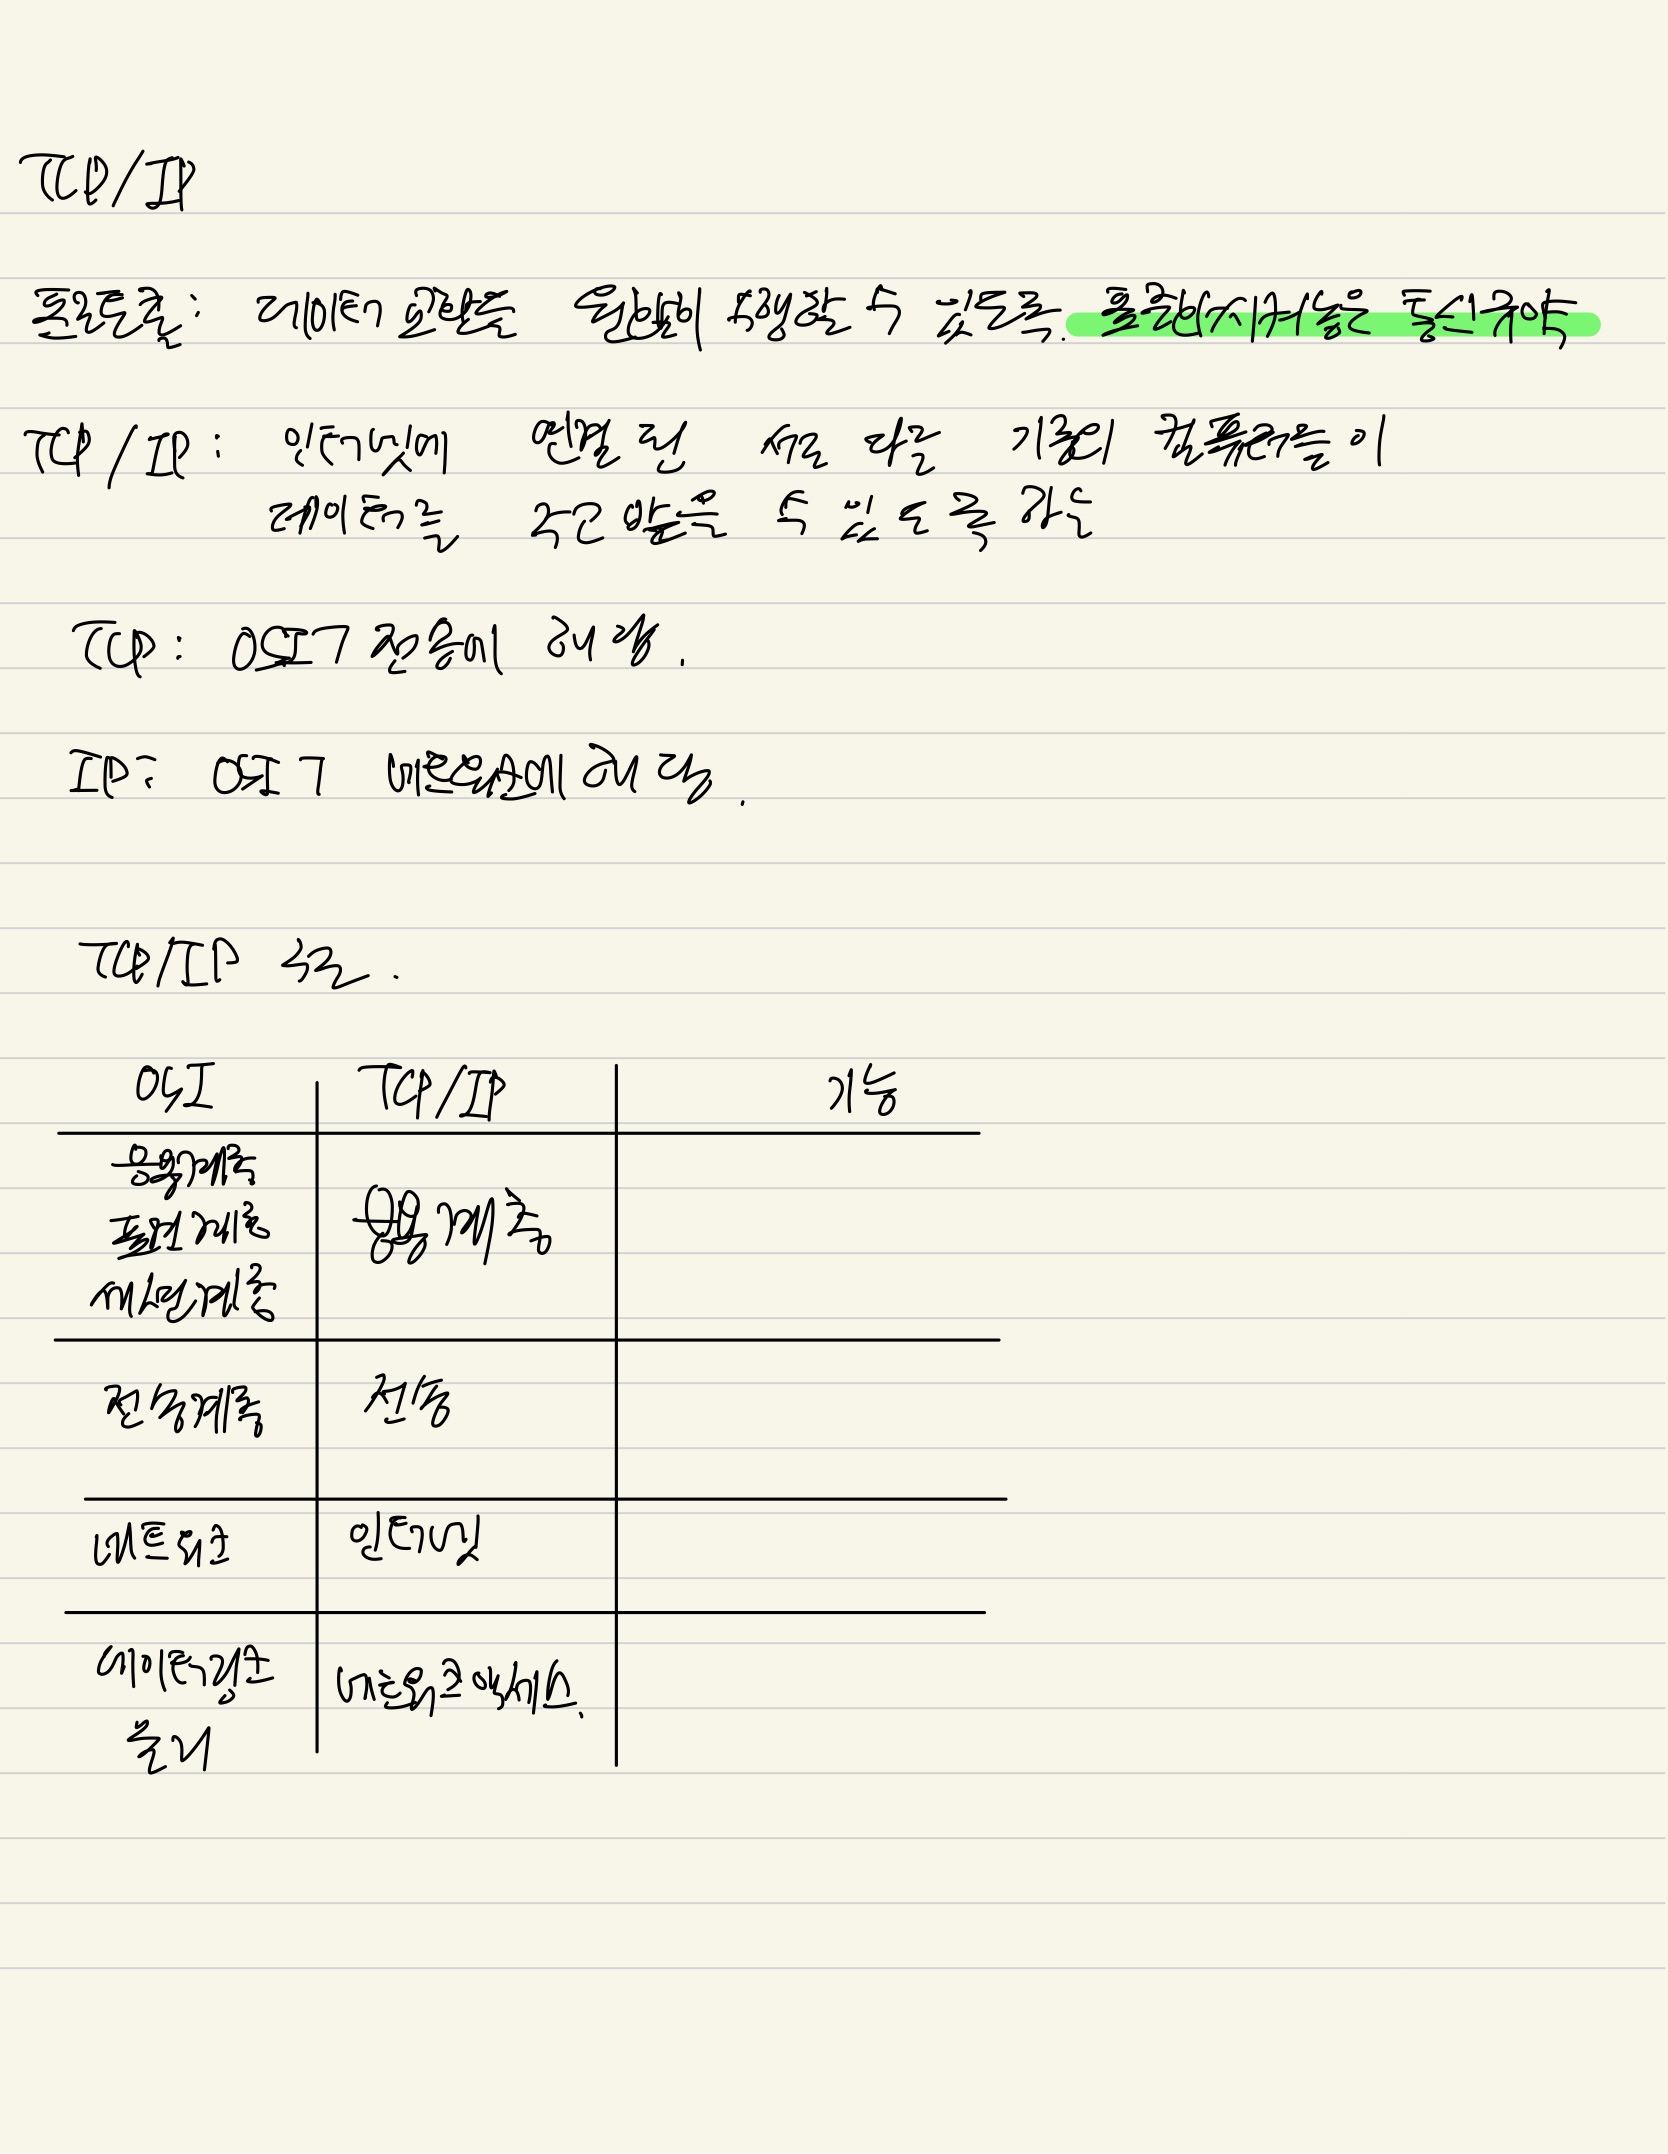 TCP/IP
프로토콜: 데이터 교환을 원활히 수행할 수 있도록 표준화시켜놓은 통신규약
TCP/IP: 인터넷에 연결된 서로 다른 기종의 컴퓨터들이
데이터를 주고 받을 수 있도록 하는
TCP: OSI7 전송에 해당.
IP: OSI7 네트워크에 해당.
TCP/IP 구조.
OSI TCP/IP 기능
응용계층
표현계층 응용계층
세션계층
전송계층 전송
네트워크 인터넷
데이터링크 네트워크 액세스.
물리